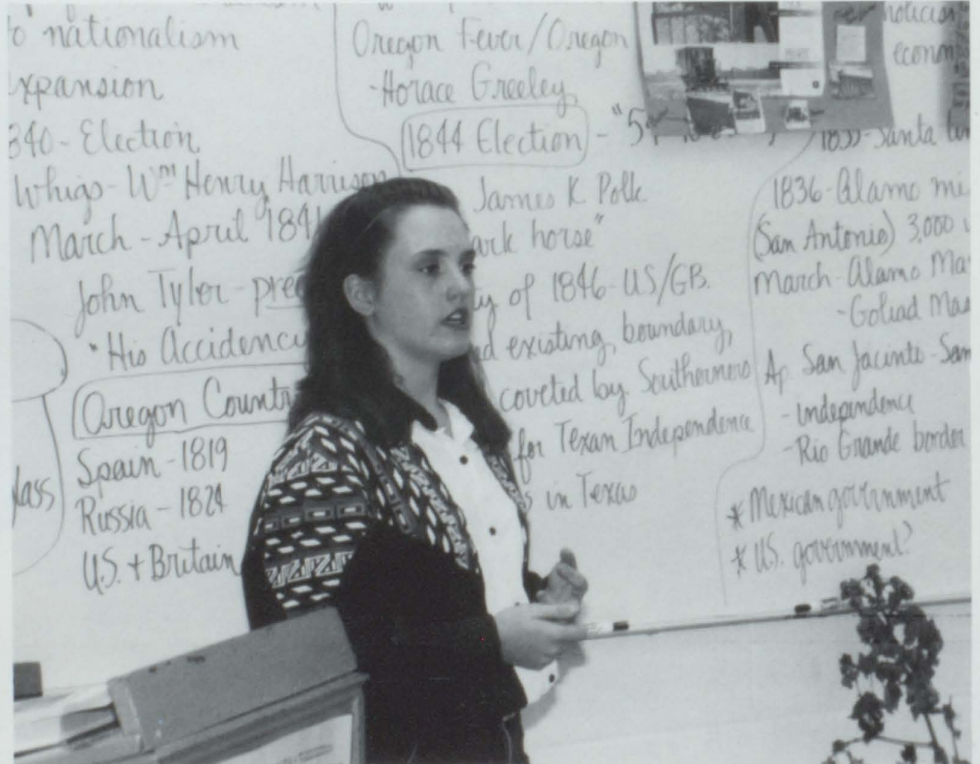 nationalism
xpansion
840 - Election
Whigs - Wm Henry Harrison
March - April 184
John Tyler - pre
"His Accidency
Oregon Countr
Spain - 1819
Russia - 1824
U.S. + Britain
lass
Oregon Fever/Oregon
- Horace Greeley
1844 Election - "5
James K Polk
ark horse"
y of 1846 - US/GB.
d existing, boundary,
coveted by Southerners
for Texan Independence
s in Texas
econom
1833 - Santa
1836 - Alamo mi
(San Antonio) 3,000
March - Alamo Ma
- Goliad Mas
Ap. San Jacinto - San
- independence
- Rio Grande border
* Mexican government
* U.S. government?